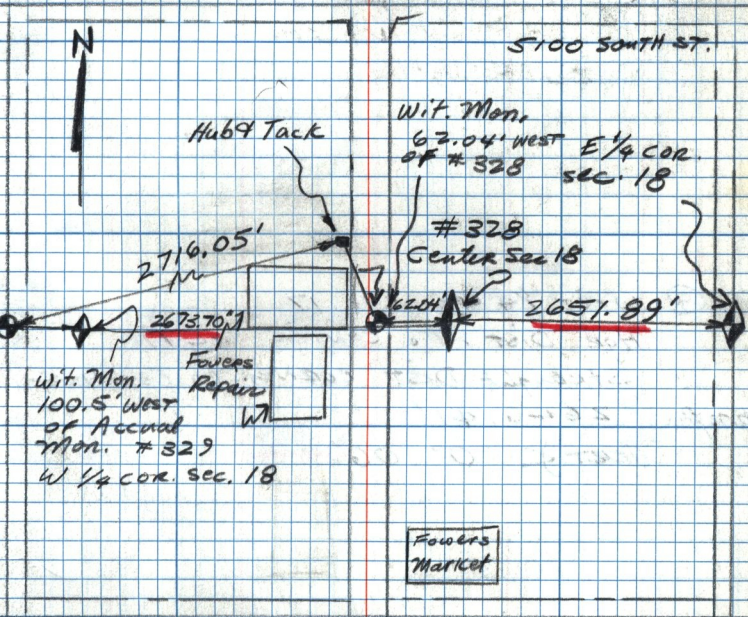 N
5100 South St.
Hub & Tack
Wit. Mon.
62.04' west
of # 328
E 1/4 cor.
sec. 18
# 328
Center Sec 18
2716.05'
2673.70'
62.04'
2651.89'
Wit. Mon.
100.5' west
of Accual
Mon. # 329
W 1/4 cor. sec. 18
Fowers
Repair
Fowers
Market